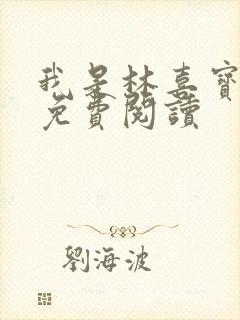 我是林喜寶
免費閱讀
劉海波